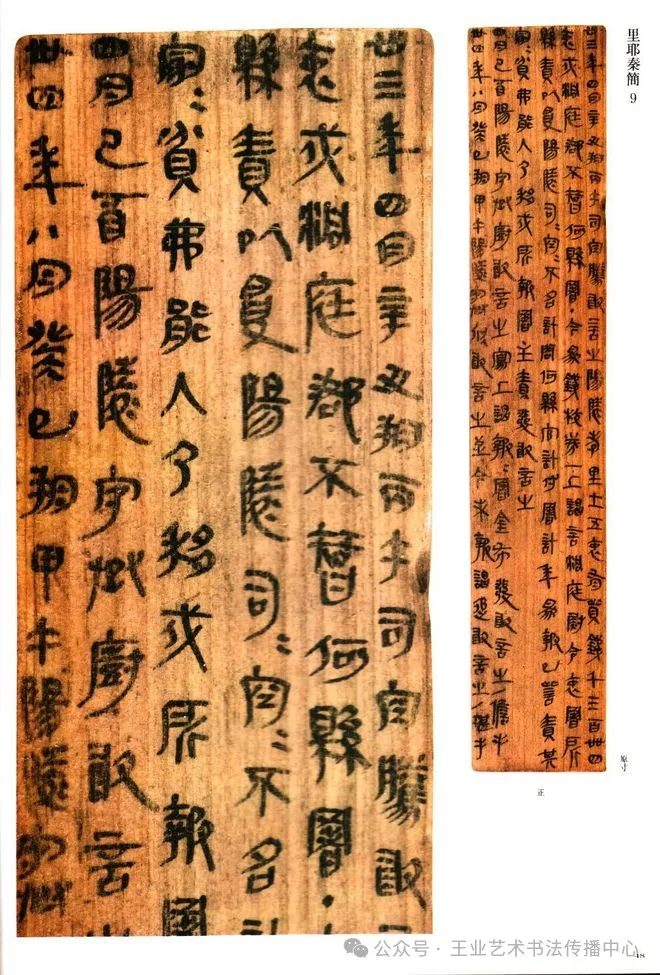 里耶秦简 9
卅三年四月辛丑朔丙午司空騰敢言之陽陵孝里士五衷有貲錢千三百卌四
衷戍洞庭郡不智何縣署·今為錢校券一上謁言洞庭尉令衷署所
縣責以受陽陵司=空=不名計問何縣官計付署計年為報已訾責其
家=貧弗能入乃移戍所報署主責發敢言之
四月己酉陽陵守丞廚敢言之寫上謁報署金布發敢言之/儋手
卅四年八月癸巳朔甲午陽陵守丞欣敢言之至今未報謁追敢言之/堪手
原寸
正
卅三年四月辛丑朔丙午司空騰敢
衷戍洞庭郡不智何縣署·
縣責以受陽陵司=空=不名計
家=貧弗能入乃移戍所報署
四月己酉陽陵守丞廚敢言
卅四年八月癸巳朔甲午陽陵守丞
48
公众号·王业艺术书法传播中心